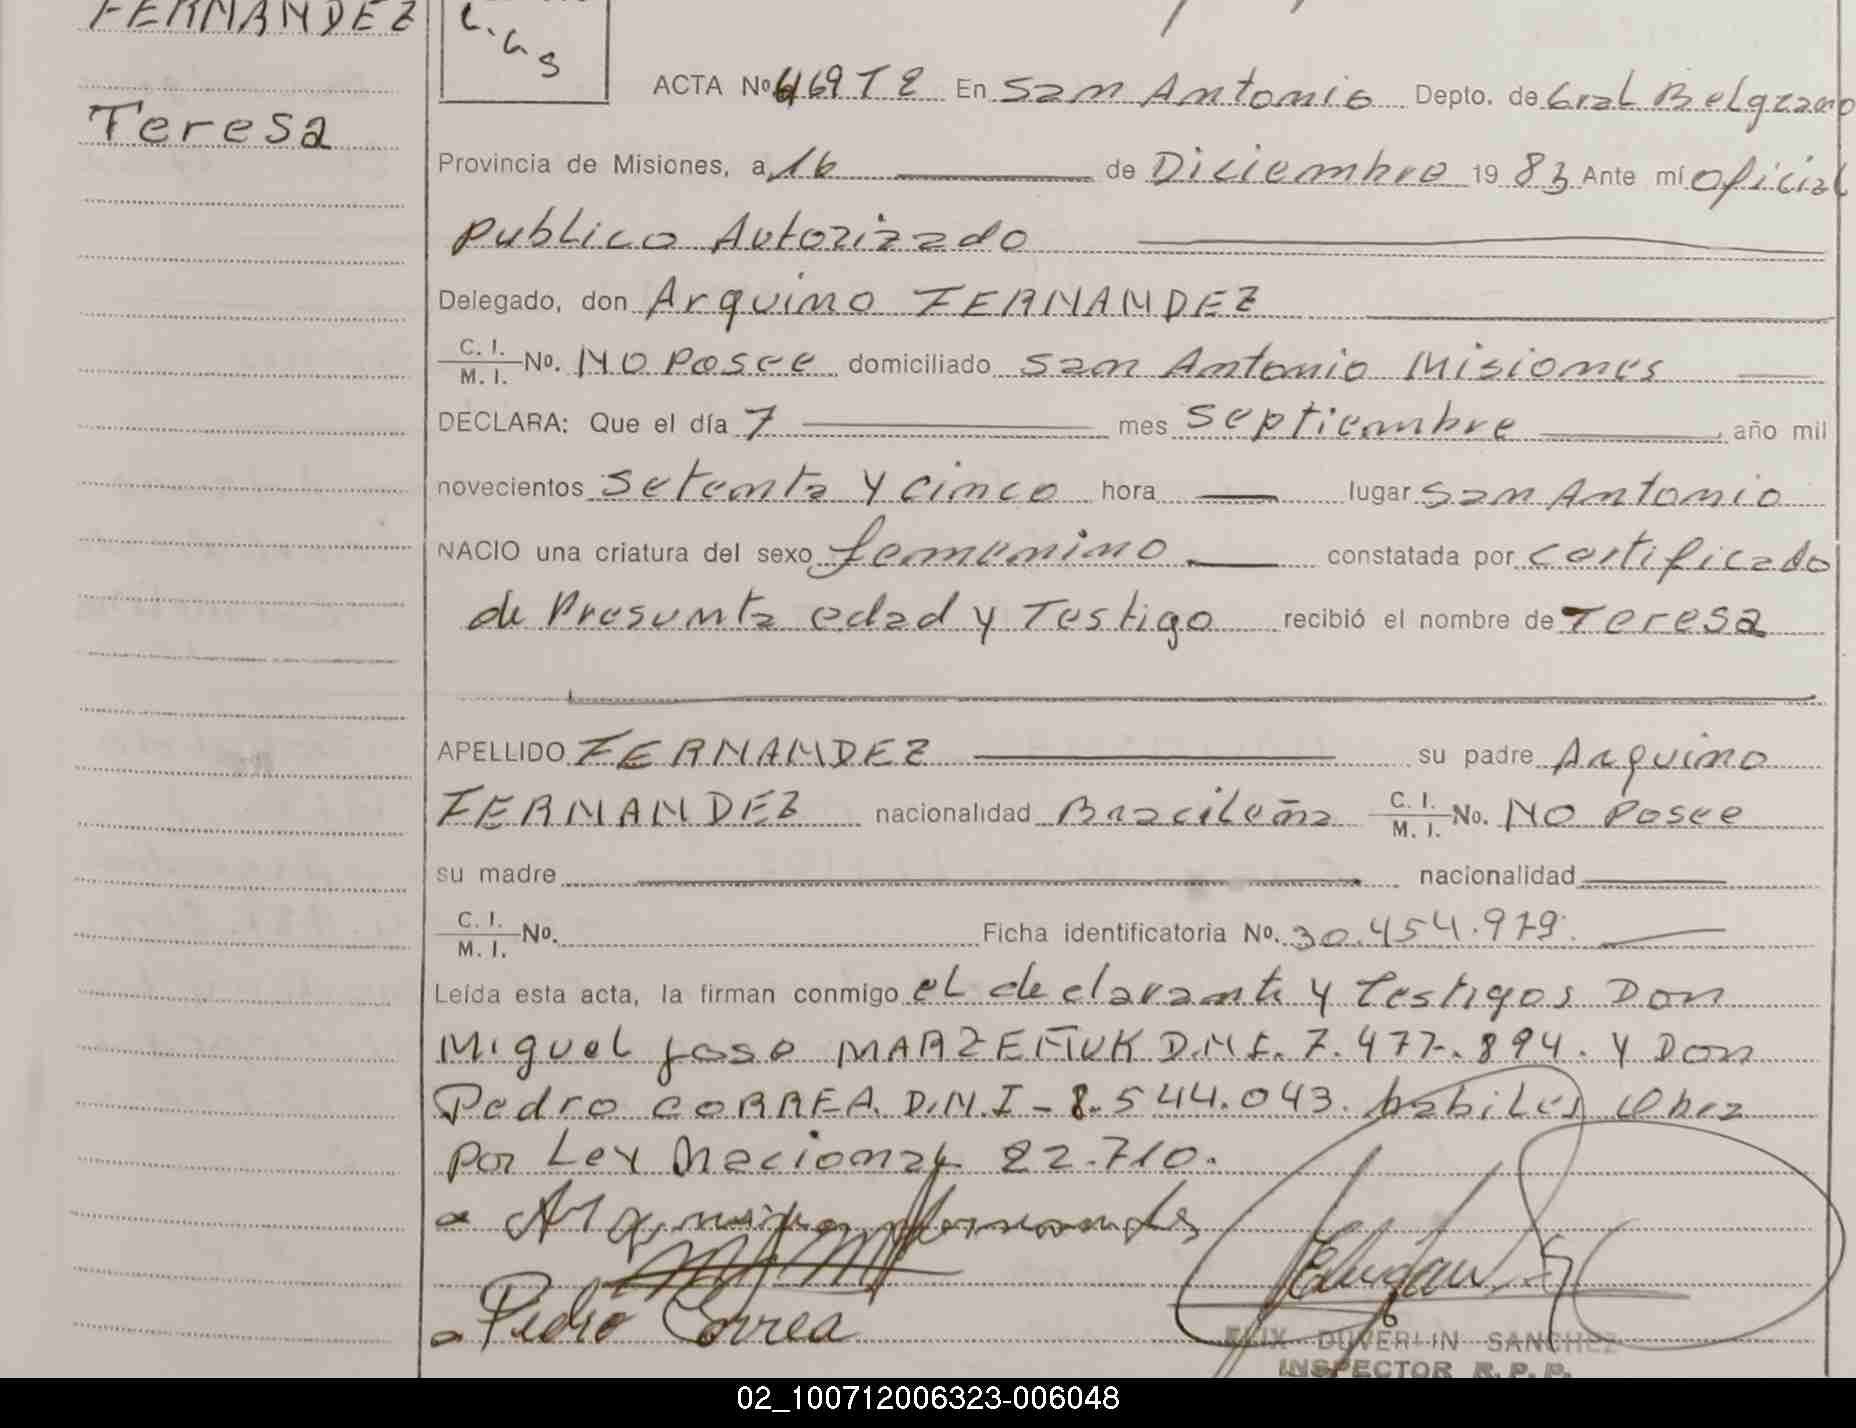 FERNANDEZ
Teresa
ACTA No 469 T 2 En San Antonio Depto. de Gral Belgrano
Provincia de Misiones, a 16 de Diciembre 19 83 Ante mí oficial
publico Autorizado
Delegado, don Arquino FERNANDEZ
C. I. / M. I. No. NO Posee domiciliado San Antonio Misiones
DECLARA: Que el día 7 mes septiembre año mil
novecientos setenta y cinco hora lugar San Antonio
NACIO una criatura del sexo femenino constatada por certificado
de Presunta edad y Testigo recibió el nombre de Teresa
APELLIDO FERNANDEZ su padre Arquino
FERNANDEZ nacionalidad Bracileña C. I. / M. I. No. NO Posee
su madre nacionalidad
C. I. / M. I. No. Ficha identificatoria No. 30.454.979.
Leída esta acta, la firman conmigo el declarante y Testigos Don
Miguel Jose D.N.I. 7.477.894. y Don
Pedro CORREA. D.N.I - 8.544.043. habiles
por Ley Nacional 22.710.
Pedro Correa
FELIX DUVERLIN SANCHEZ
INSPECTOR R.P.P.
02_100712006323-006048